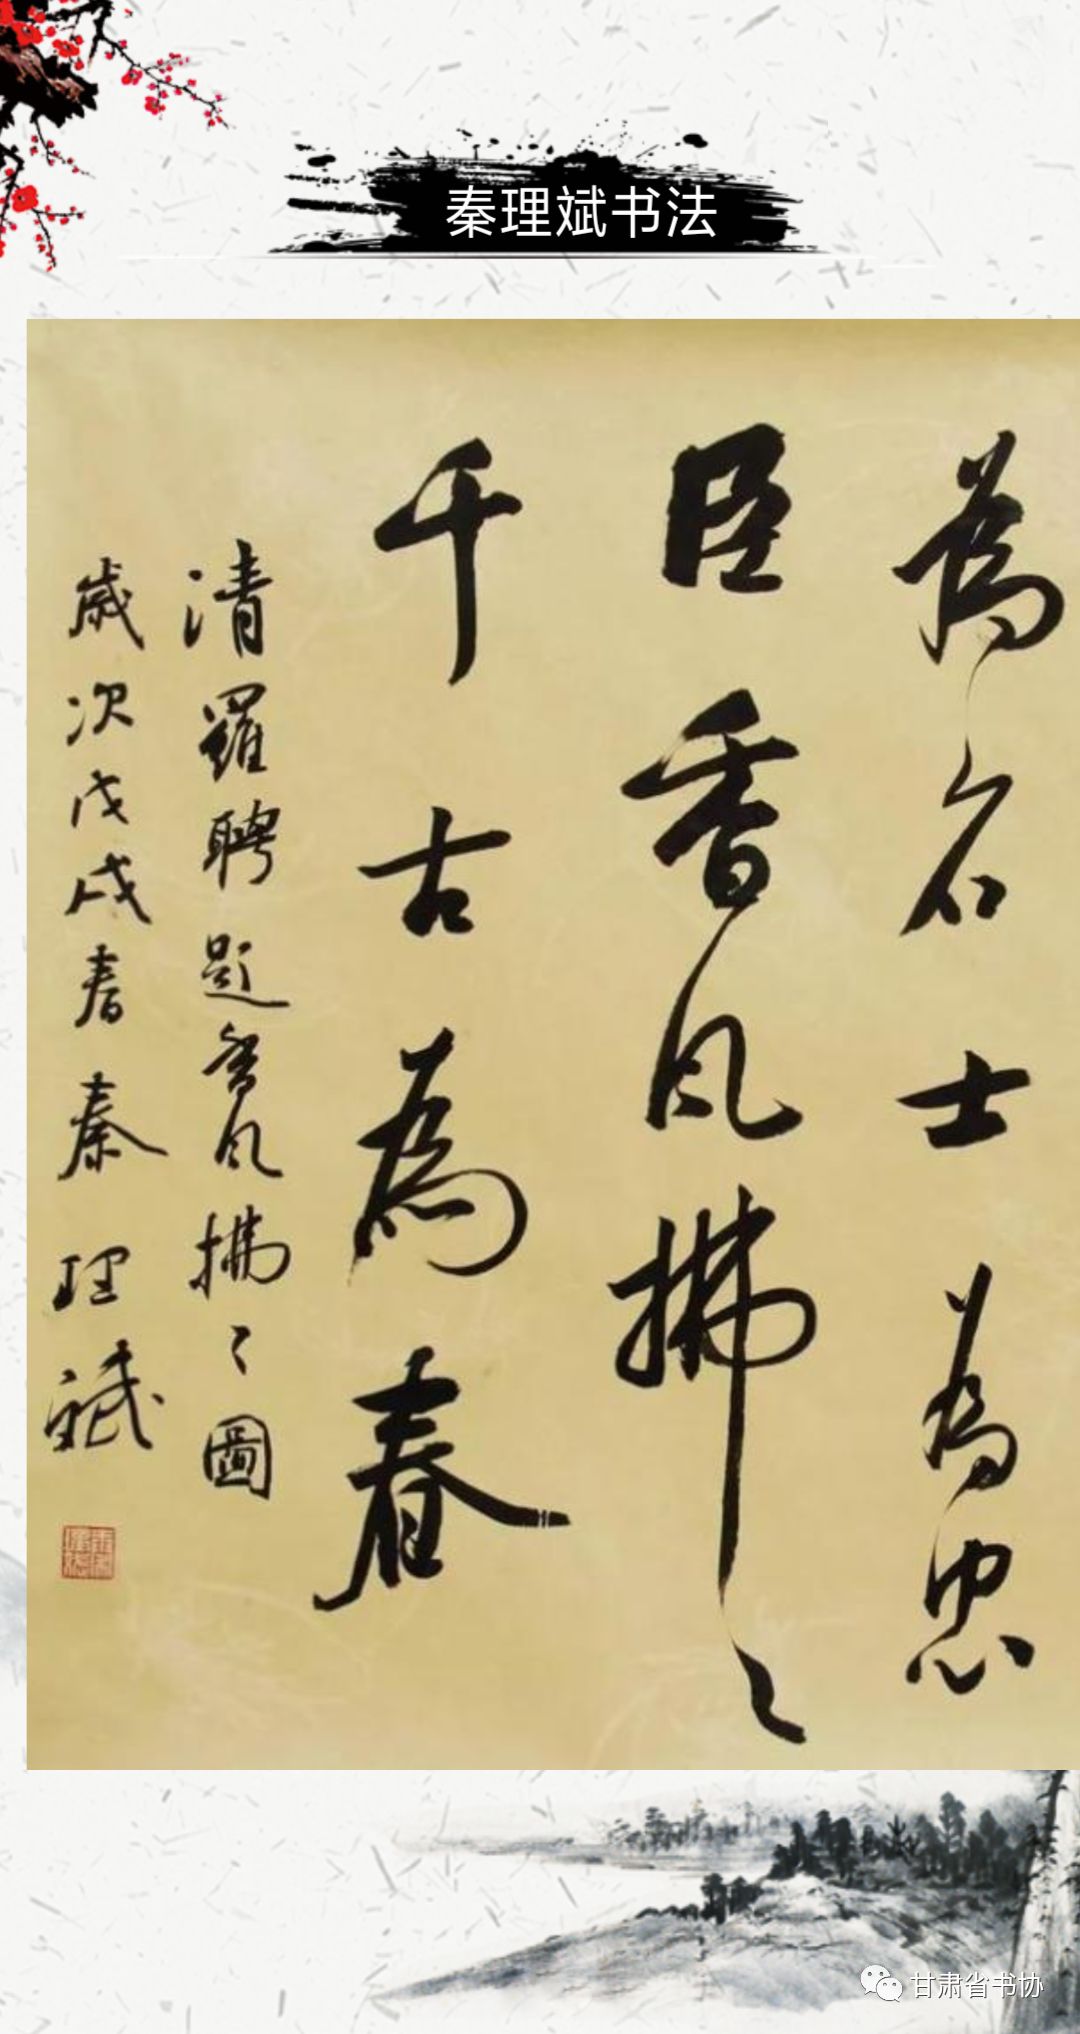 秦理斌书法
為名士為忠
臣香風拂〻
千古為春
清羅聘題香風拂〻圖
歲次戊戌春秦理斌
甘肃省书协